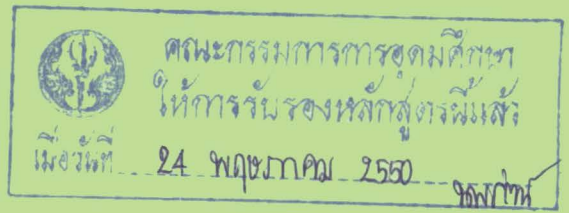 คณะกรรมการการอุดมศึกษา
ให้การรับรองหลักสูตรนี้แล้ว
เมื่อวันที่ 24 พฤษภาคม 2550